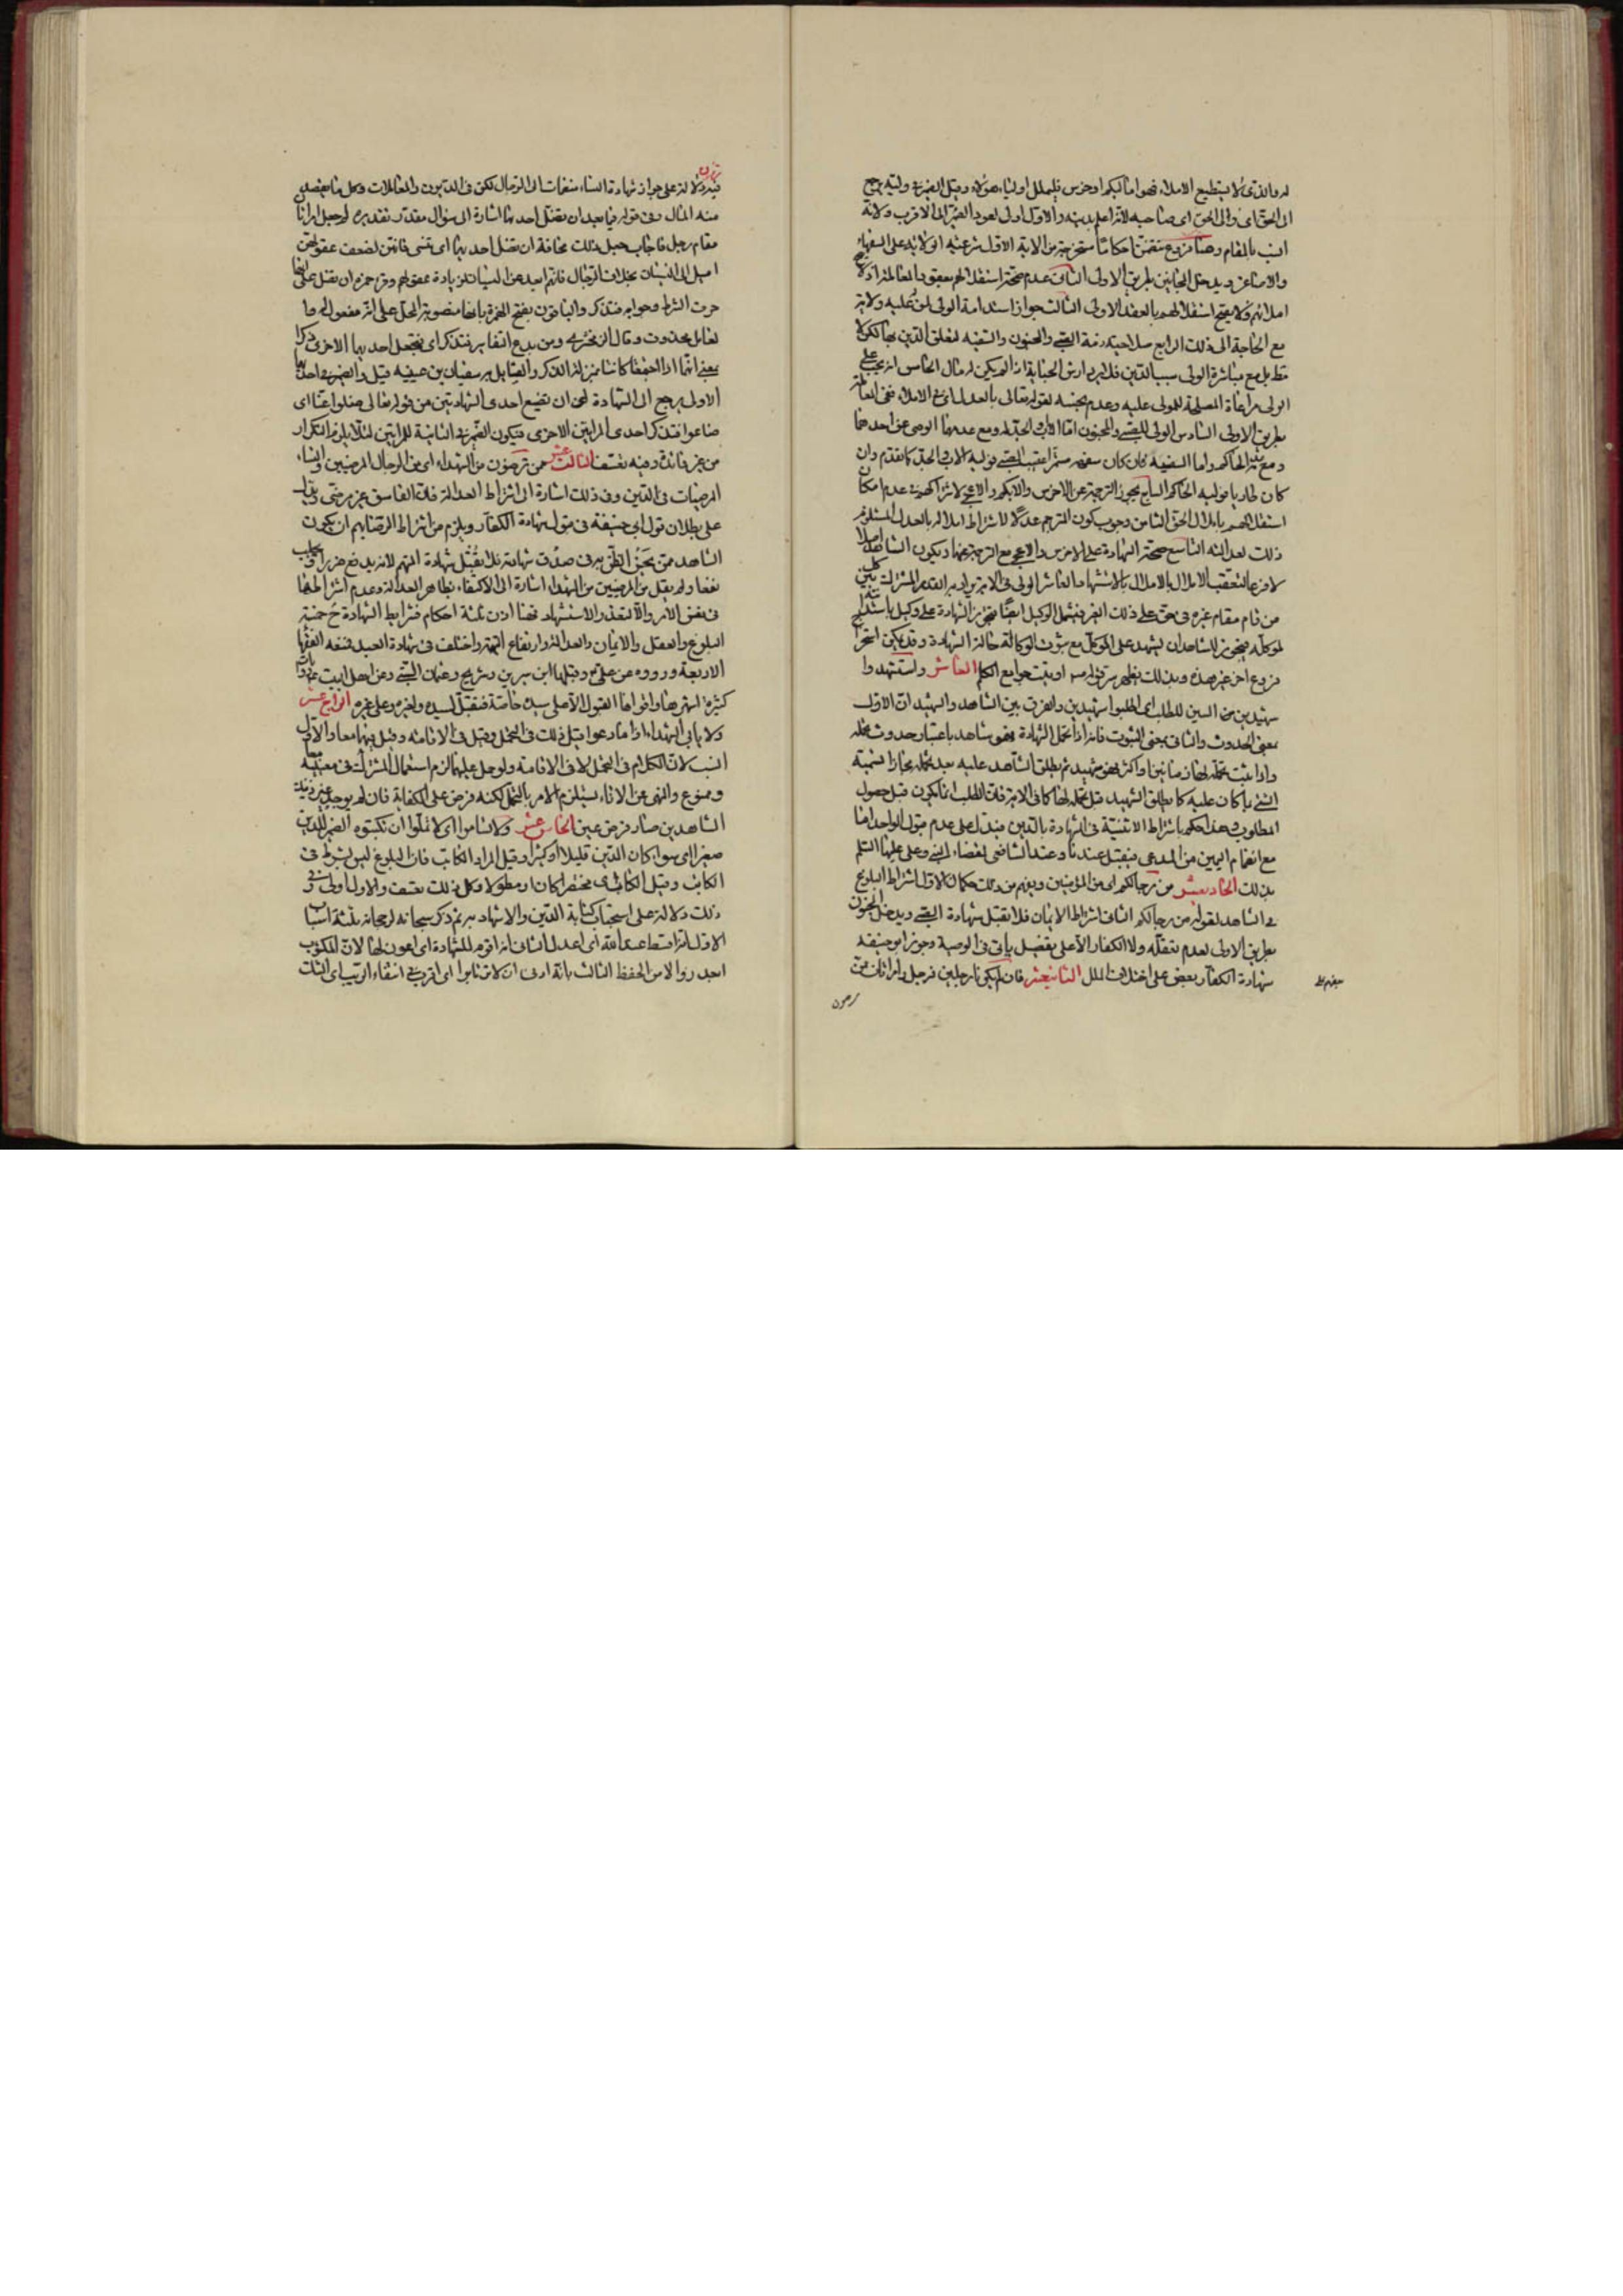 له والذى لا يستطيع الاملاء فهو اما ابكم او خرس فليملل اولياء هؤلاء وقيل الضمير فى وليه يرجع
الى الحق اى والى الحق اى صاحبه لانه اعلم بدينه والاول اولى لعود الضمير الى الاقرب ولانه
انسب بالمقام وهنا فروع متضمنة احكاما مستخرجة من الاية الاول شرعية الولاية على السفهاء
والاصاغر ويدخل المجانين بطريق الاولى الثانى عدم صحة استقلالهم بعقود المعاملة اذ لا يصح
املائهم ولا يصح استقلالهم بالعقد الاولى الثالث جواز استدامة الولى لمن عليه ولاية
مع الحاجة الى ذلك الرابع صلاحية ذمة الصبى والمجنون والسفيه لتعلق الدين بها لكن لا
مط بل مع مباشرة الولى سبب الدين فلا يرد ارش الجناية اذ لم يكن له مال الخامس انه يجب على
الولى مراعاة المصلحة للمولى عليه وعدم بخسه لقوله تعالى بالعدل اى فى الاملاء ففى المعاملة
بطريق الاولى السادس الولى للصبى والمجنون اما الاب او الجد له ومع عدمهما الوصى عن احدهما
ومع الحاكم واما السفيه فان كان سفهه مستمرا عقيب الصبى فوليه الاب والجد كما تقدم وان
كان طاريا فوليه الحاكم السابع يجوز الترجمة عن الاخرس والابكم والاعجمى لاشتراكهم فى عدم امكان
استقلالهم باملال الحق الثامن وجوب كون المترجم عدلا لاشتراط املاله بالعدل المستلزم
ذلك لعدالته التاسع صحة الشهادة على الاخرس والاعجمى مع الترجمة عنهما ويكون الشاهد اصلا
لا فرعا لتعقب الاملال بالاستشهاد العاشر الولى فى الاية يراد به القدر المشترك بين كل
من قام مقام غيره فى حق على ذلك الغير فيشمل الوكيل ايضا فيجوز الشهادة على وكيل باستدانته
لموكله فيجوز للشاهد ان يشهد على الموكل مع ثبوت الوكالة حالة الشهادة وقد يمكن استخراج
فروع اخر غير هذه وبذلك يظهر سر قوله ص اوتيت جوامع الكلم العاشر واستشهدوا
شهيدين من السين للطلب اى اطلبوا شهيدين والفرق بين الشاهد والشهيد ان الاول
بمعنى الحدوث والثانى بمعنى الثبوت فانه اذا تحمل الشهادة فهو شاهد باعتبار حدوث تحمله
واذا ثبت تحمله لها زمانين او اكثر فهو شهيد ثم يطلق الشاهد عليه بعد تحمله مجازا تسمية
الشىء بما كان عليه كما يطلق الشهيد قبل تحمله لها كما فى الاية فان الطلب انما يكون قبل حصول
المطلوب وهذا حكم باشتراط الاثنينية فى الشهادة بالدين فيدل على عدم قبول الواحد اما
مع انضمام اليمين من المدعى فيقبل عندنا وعند الشافعى لقضاء النبى وعلى عليهما السلم
بذلك الحاديعشر من رجالكم اى من المؤمنين ويفهم من ذلك حكمان الاول اشتراط البلوغ
فى الشاهد لقوله من رجالكم الثانى اشتراط الايمان فلا تقبل شهادة الصبى ويدخل المجنون
بطريق الاولى لعدم تعقله ولا الكفار الا على تفصيل ياتى فى الوصية وجوز ابو حنيفة
شهادة الكفار بعض على بعض على اختلاف الملل الثانيعشر فان لم يكونا رجلين فرجل وامراتان ممن
ترضون
فيه دلالة على جواز شهادة النساء منضمات الى الرجال لكن فى الديون والمعاملات وكل ما يقصد
منه المال وفى قوله فيما بعد ان تضل احديهما اشارة الى سؤال مقدر تقديره لم جعل امراتان
مقام رجل فاجاب جعل ذلك مخافة ان تضل احديهما اى تنسى فانهن لضعف عقولهن
اميل الى النسيان بخلاف الرجال فانهم ابعد عن النسيان لزيادة عقولهم وقرء حمزه ان تضل على انها
حرف الشرط وجوابه فتذكر والباقون بفتح الهمزة بانها منصوبة المحل على انه مفعول له
لعامل محذوف وقال الزمخشرى ومن بدع التفاسير فتذكر اى فتجعل احديهما الاخرى ذكرا
بمعنى انهما اذا اجتمعتا كانتا بمنزلة الذكر والقائل به سفيان بن عيينه قيل والضمير فى احديهما
الاولى يرجع الى الشهادة اى ان تضيع احدى الشهادتين من قوله تعالى ضلوا عنا اى
ضاعوا فتذكر احدى المراتين الاخرى فيكون الضمير فى الثانية للمراتين لئلا يلزم التكرار
من غير فائدة وفيه تعسف الثالث عشر ممن ترضون من الشهداء اى من الرجال المرضيين والنساء
المرضيات فى الدين وفى ذلك اشارة الى اشتراط العدالة فان الفاسق غير مرضى ويدل
على بطلان قول ابى حنيفة فى قبول شهادة الكفار ويلزم من اشتراط الرضا بهم ان يكون
الشاهد ممن يحق الظن به فى صدق شهادته فلا تقبل شهادة المتهم لانه يدفع ضررا او يجلب
نفعا ولم يقل من المرضيين من الشهداء اشارة الى الاكتفاء بظاهر العدالة وعدم اشتراطها
فى نفس الامر والا لتعذر الاستشهاد فهنا اذن ثلثة احكام فشرايط الشهادة ح خمسة
البلوغ والعقل والايمان والعدالة وارتفاع التهمة واختلف فى شهادة العبد فمنعه الفقهاء
الاربعة ورووه عن على ع وقبلها ابن سيرين وشريح وعثمان البتى وعن اهل البيت ع روايات
كثيرة اشهرها واقواها القبول الا على سيده خاصة فتقبل لسيده ولغيره وعلى غيره الرابع عشر
ولا ياب الشهداء اذا ما دعوا قيل ذلك فى التحمل وقيل فى الاقامة وقيل فيهما معا والاول
انسب لان الكلام فى التحمل لا فى الاقامة ولو حمل عليهما لزم استعمال المشترك فى معنييه معا
وممنوع والنهى عن الاباء يستلزم الامر بالتحمل لكنه فرض على الكفاية فان لم يوجد غير ذينك
الشاهدين صار فرض عين الخامس عشر ولا تساموا اى لا تملوا ان تكتبوه الضمير للدين
صغيرا اى سواء كان الدين قليلا او كثيرا وقيل المراد الكاتب فان البلوغ ليس بشرط فى
الكاتب وقيل الكتاب اى مختصرا كان او مطولا وكل ذلك تعسف والاول اولى وفى
ذلك دلالة على استحباب كتابة الدين والاشهاد به ثم ذكر سبحانه لرجحانه ثلثة اسباب
الاول انه اقسط عند الله اى اعدل الثانى انه اقوم للشهادة اى اعون لها لان المكتوب
اجدر والامن الحفظ الثالث بانه ادنى ان لا ترتابوا اى اقرب فى انتفاء الريب اى الشك